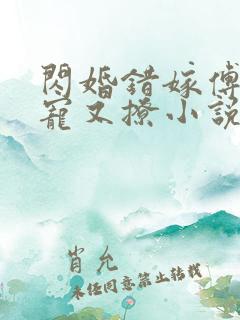 閃婚錯嫁傅
寵又撩小説
肖允
未经同意禁止转载